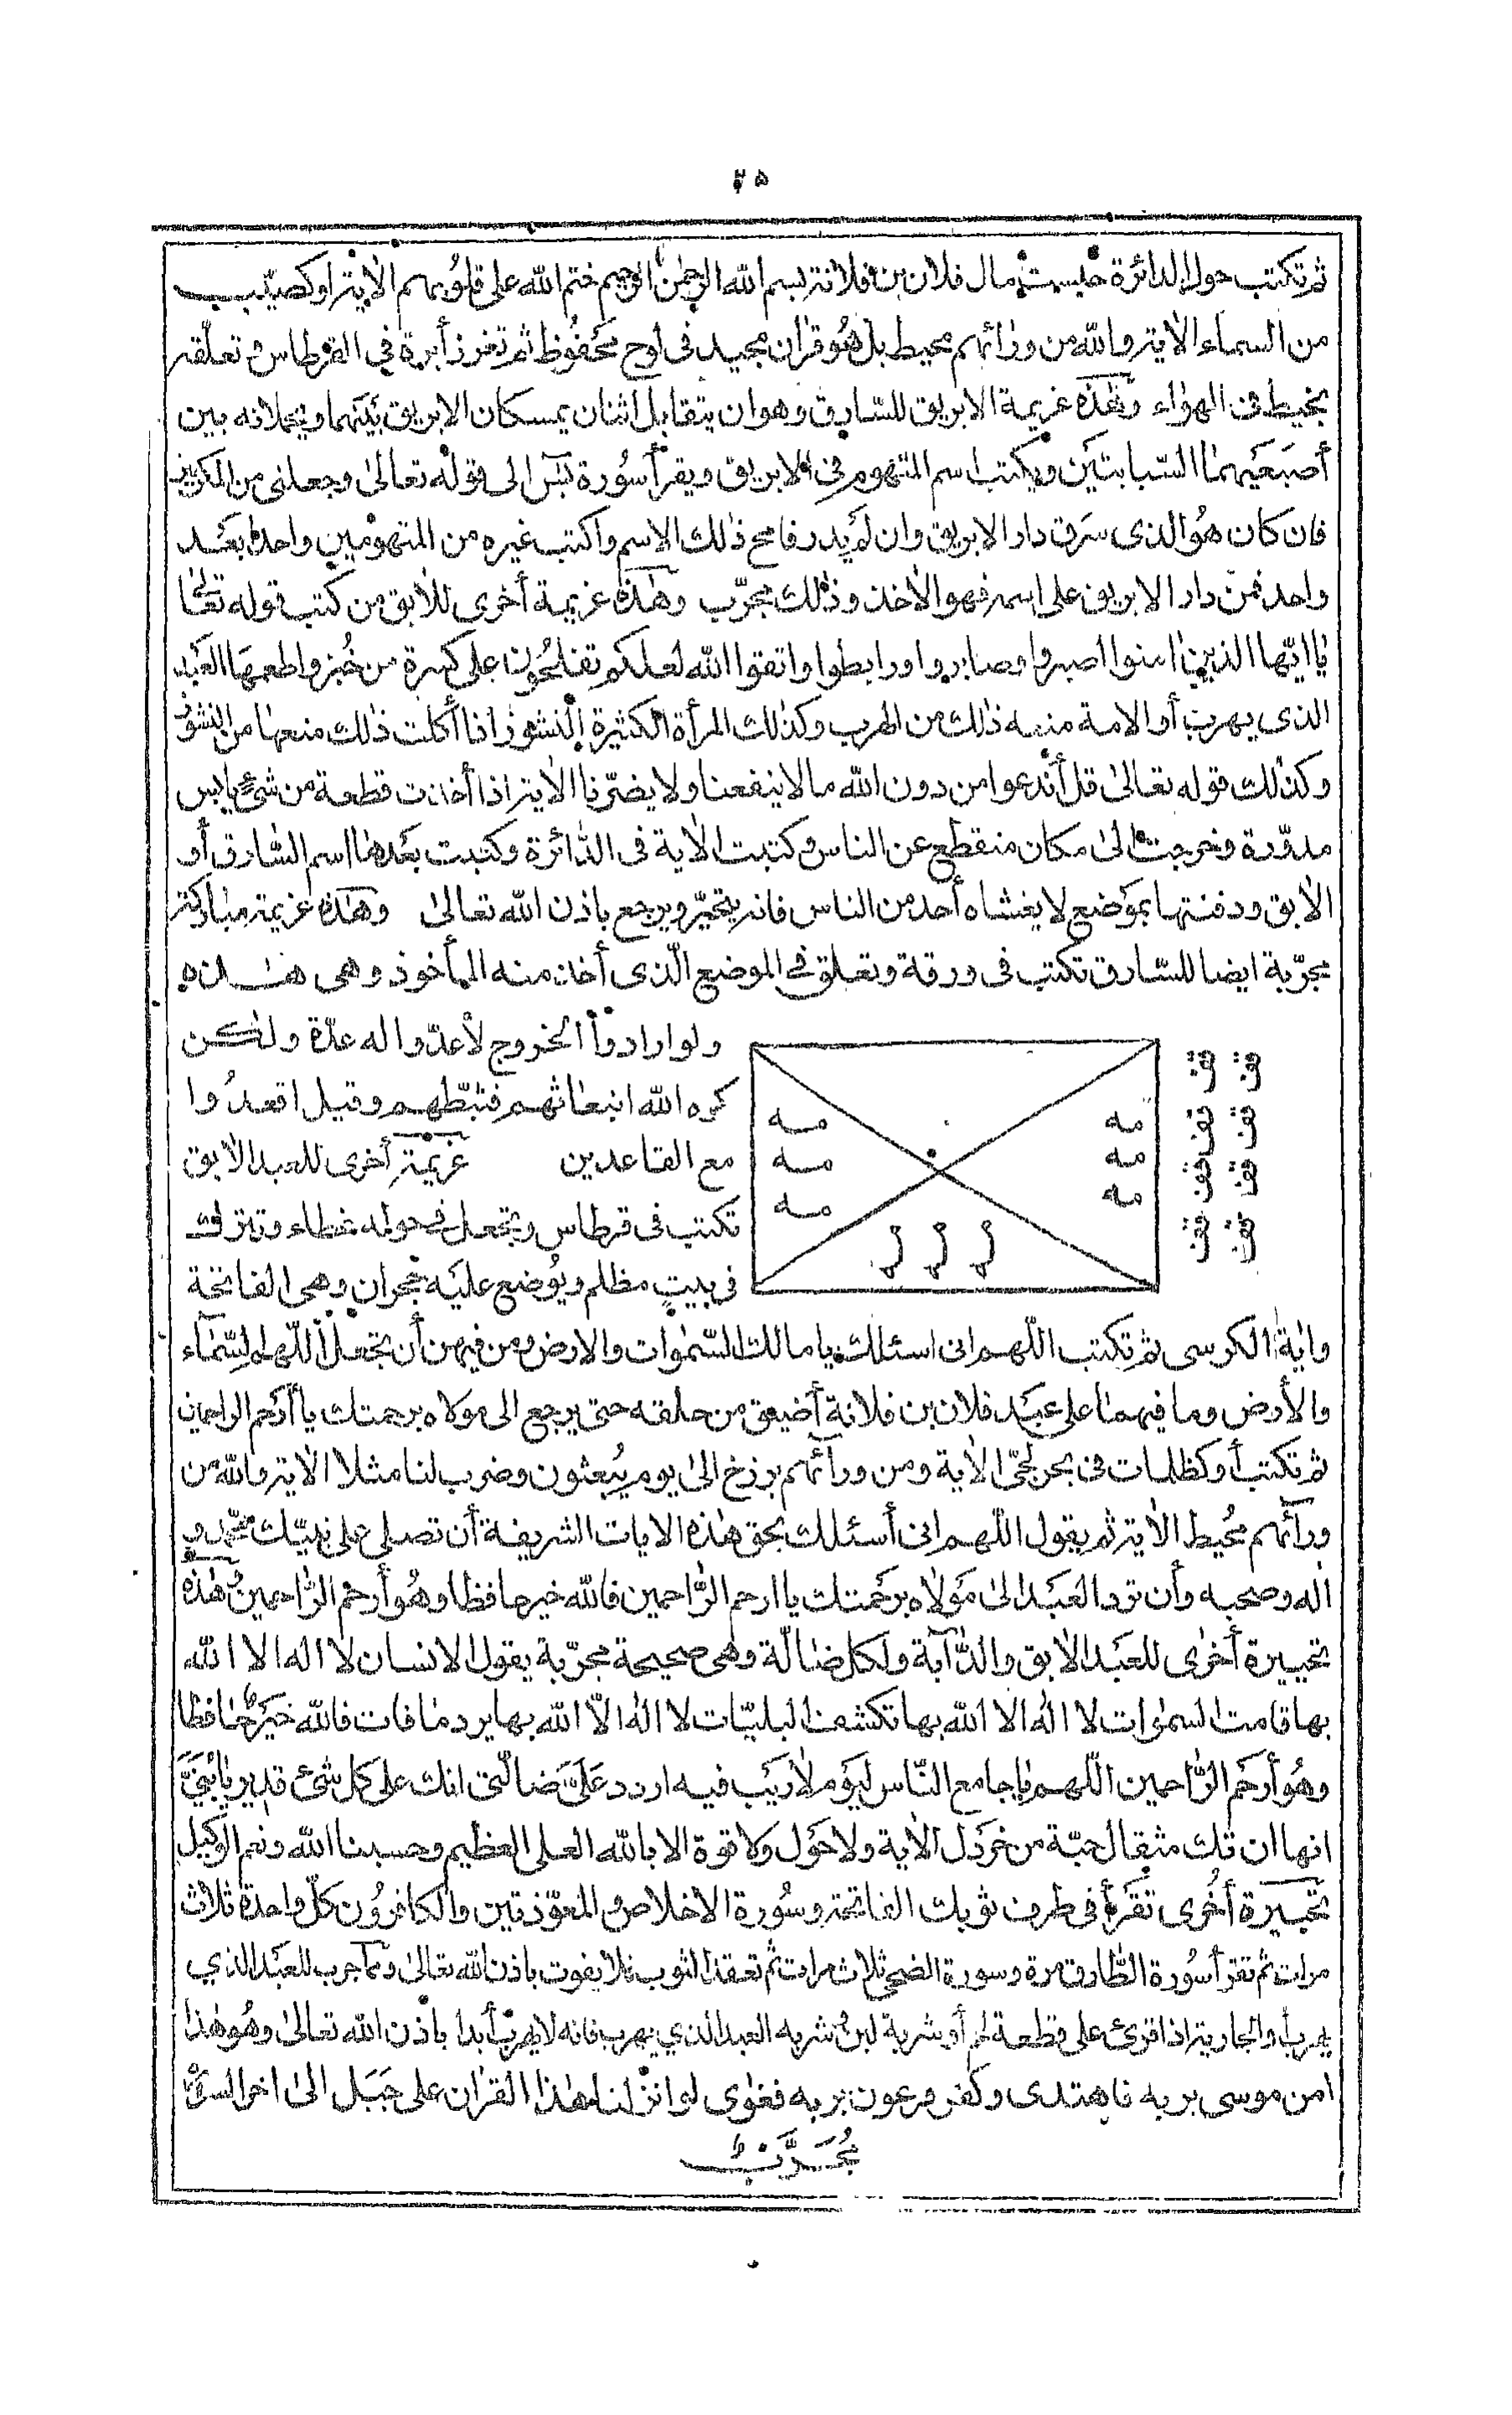 ٢٥
ثم تكتب حول الدائرة حبست مال فلان بن فلانة بسم الله الرحمٰن الرحيم ختم الله على قلوبهم الاٰية اوكصيّب
من السماء الاٰية والله من ورٰائهم محيط بل هُو قراٰن مجيد فى لوح مَحفُوظ ثم تغرز أبرة في القرطاس و تعلّقه
بخيط فى الهوٰاء وهٰذه عزيمة الابريق للسّارق وهو ان يتقابل اثنان يمسكان الابريق بَينَهما ويحملانه بين
أصبَعَيهما السّبابتَين ويكتب اسم المتهوم فى الابريق ويقرأ سُورة يٰسٓ الى قوله تعالىٰ وجعلنى من المكرمين
فان كان هُو الذى سرق دار الابريق وان لم يَدر فامح ذٰلك الاسم واكتب غيره من المتهومين واحدا بعَد
واحد فمن دار الابريق على اسمه فهو الاٰخذ وذٰلك مجرّب وهٰذه عزيمة أخرى للاٰبق من كتب قوله تعالىٰ
يٰا ايّها الذين اٰمنوا اصبروا وصابروا ورابطوا واتقوا الله لعلكم تفلحُون على كسرة من خُبز واطعمهَا العَبد
الذى يهرب أو الامة منعه ذٰلك من الهرب وكذٰلك المرأة الكثيرة النشوز اذا أكلت ذٰلك منعها من النشوز
وكذٰلك قوله تعالىٰ قل أندعوا من دون الله ما لا ينفعنا ولا يضرّنا الاٰية اذا أخذت قطعة من شىء يابس
مدوّرة وخرجت الىٰ مكان منقطع عن الناس وكتبت الاٰية فى الدّائرة وكتبت بعَدها اسم السّارق أو
الاٰبق ودفنتها بموَضع لا يغشاه أحد من الناس فانه يتحيّر ويرجع باذن الله تعالىٰ وهٰذه عزيمة مباركة
مجرّبة ايضا للسّارق تكتب فى ورقة وتعلق في الموضع الّذى أخذ منه المأخوذ وهى هٰذه
ولو ارادوا الخروج لأعدّوا له عدّة ولٰكن
كره الله انبعاثهم فثبّطهم وقيل اقعدُوا
مع القاعدين عَزيمَة أخرى للعبد الاٰبق
تكتب فى قرطاس ويجعل فى حوله غطاء وتترك
فى بيتٍ مظلم ويُوضع عليَه حجران وهى الفاتحة
قف قف
قف قف
قف قف
قف قف
مه مه
مه مه
مه مه
واٰية الكرسى ثم تكتب اللّهم انى اسئلك يا مالك السّمٰوات والارض ومن فيهن أن تجعل اللّهم السّمٰاء
والأرض وما فيهمٰا على عبَد فلان بن فلانة أضيق من حلقه حتى يرجع الى مولاه برحمتك يا أرحم الراحمين
ثم تكتب أو كظلمات فى بحر لجّىّ الاٰية ومن ورآئهم برزخ الىٰ يوم يُبعثون وضرب لنا مثلا الاٰية والله من
ورآئهم مُحيط الاٰية ثم يقول اللّهم انى أسئلك بحق هٰذه الاٰيات الشريفة أن تصلى على نبيّك محمّد و
اٰله وصحبه وأن ترد العَبَد الىٰ مَولاه برحَمتك يا ارحم الرّاحمين فالله خير حافظا وهُو أرحم الرّاحمين وهٰذه
تحييرة أخرٰى للعَبَد الاٰبق والدّآبة ولكل ضٰالّة وهى صحيحة مجرّبة يقول الانسان لا اله الا الله
بها قامت السمٰوات لا الٰه الا الله بها تكشف البليّات لا الٰه الاّ الله بها يرد مٰا فات فالله خيَر حٰافظا
وهُو أرحَم الرّاحمين اللّهم يٰا جامع النّاس ليَوم لٰا ريَب فيه اردد عَلىَّ ضٰالّتى انك على كل شىء قدير يٰا بُنَىَّ
انها ان تك مثقال حبّة من خردَل الاٰية ولا حَول ولا قوة الا بالله العلى العظيم وحسبنا الله ونعم الوكيل
تحييرة أخُرى تقَرأ فى طرف ثوبك الفاتحة وسُورة الاخلاص والمعوّذتين والكافرُون كلّ واحدة ثلاث
مرات ثم تقرأ سُورة الطّارق مرة وسورة الضحى ثلاث مرات ثم تعقد الثوب فلا يفوت باذن الله تعالىٰ ومما جرب للعَبَد الذي
يهرب أو الجارية اذا قرىء على قطعة لحم أو شربة لبن شربه العبد الذي يهرب فانه لا يهرب أبدا باذن الله تعالىٰ وهُو هٰذا
اٰمن موسى بربه فاهتدى وكفر فرعون بربه فغوٰى لو انزلنا هٰذا القراٰن على جَبَل الىٰ اخر السورة
مُجَرَّبٌ